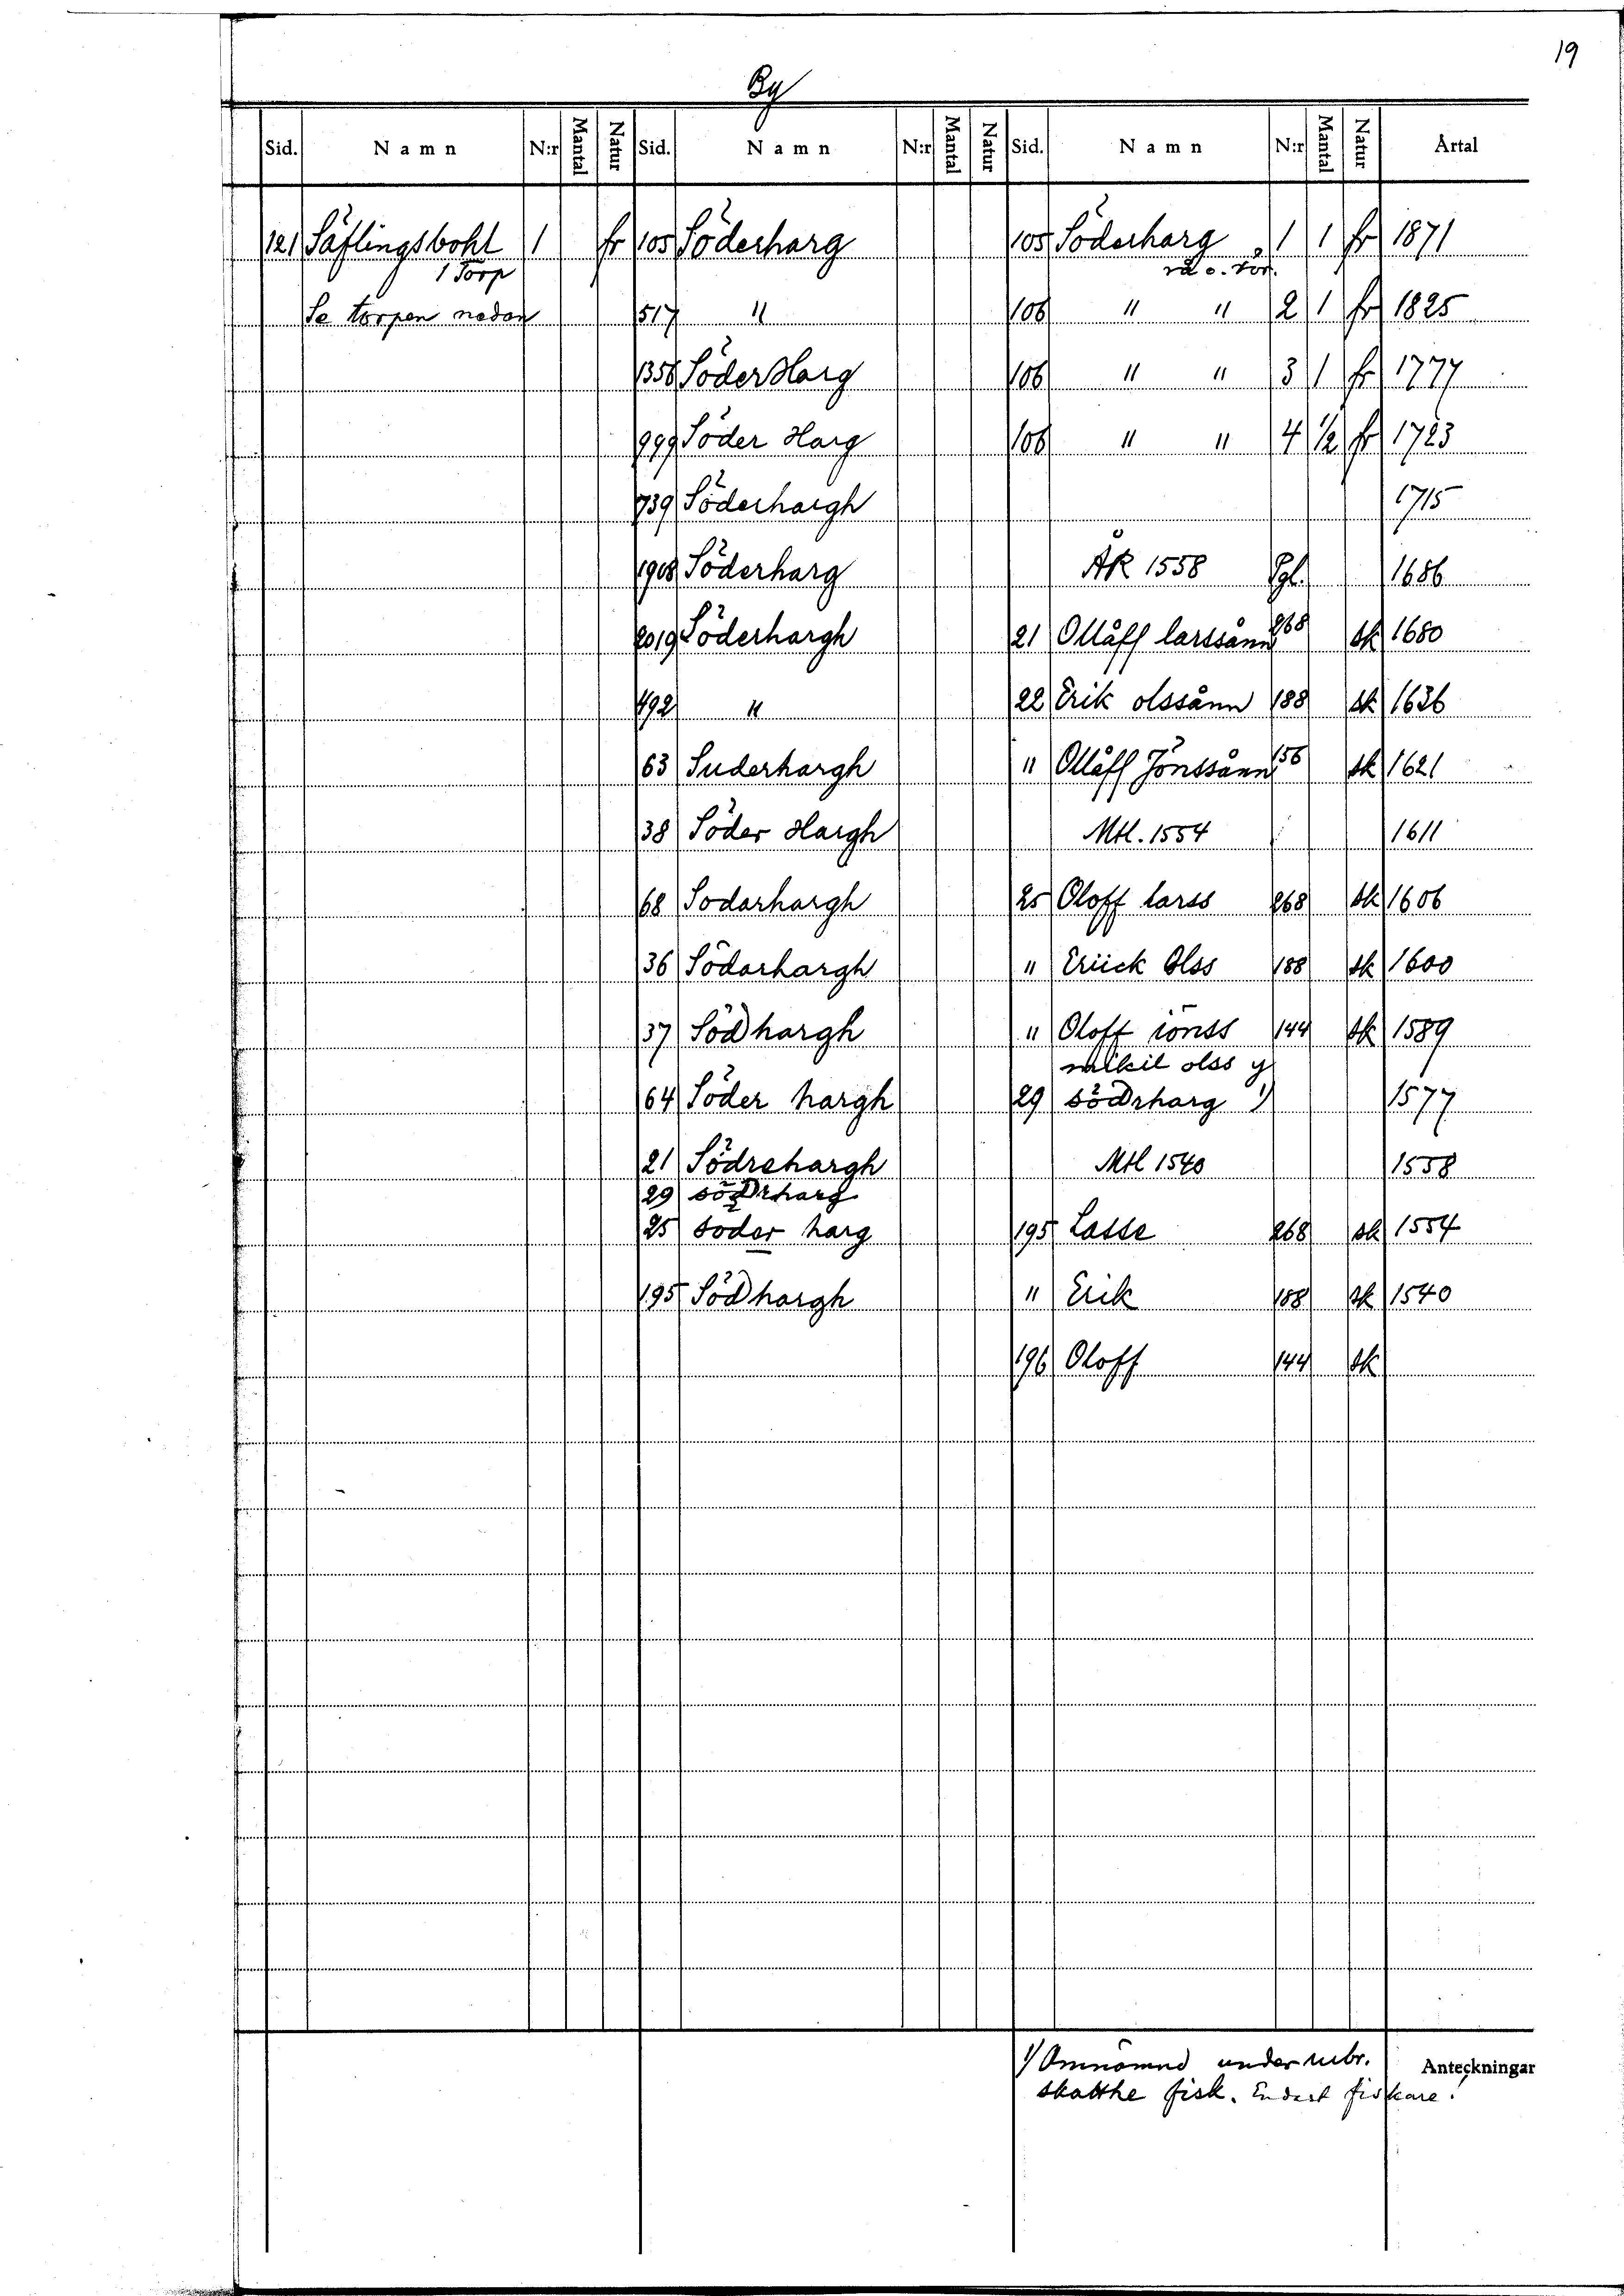 19
By
Sid. Namn N:r Mantal Natur Sid. Namn N:r Mantal Natur Sid. Namn N:r Mantal Natur Årtal
121 Säflingsbohl 1 fr 105 Söderharg 105 Söderharg 1 1 fr 1871
1 Torp rå o. rör.
Se torpen nedan 517 " 106 " " 2 1 fr 1825
1356 Söder Harg 106 " " 3 1 fr 1777
999 Söder Harg 106 " " 4 1/2 fr 1723
739 Söderhargh 1715
1908 Söderharg ÅR 1558 Pgl. 1686
2019 Söderhargh 21 Ollåff larssånn 268 sk 1680
492 " 22 Erik olssånn 188 sk 1636
63 Suderhargh " Ollåff Jönssånn 156 sk 1621
38 Söder Hargh Mtl. 1554 1611
68 Sodarhargh 25 Oloff larss 268 sk 1606
36 Södarhargh " Eriick Olss 188 sk 1600
37 Södhargh " Oloff iönss 144 sk 1589
mikil olss y
64 Söder hargh 29 södrharg 1) 1577
21 Södrehargh Mtl 1540 1558
29 södrharg
25 soder harg 195 Lasse 268 sk 1554
195 Södhargh " Erik 188 sk 1540
196 Oloff 144 sk
1) Omnämnd under rubr. Anteckningar
skatthe fisk. Endast fiskare!